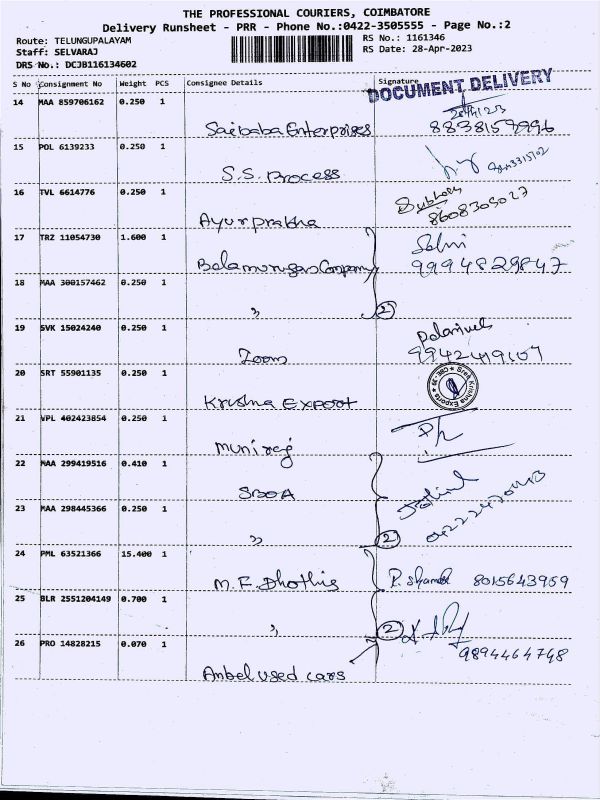 THE PROFESSIONAL COURIERS, COIMBATORE
Delivery Runsheet - PRR - Phone No.:0422-3505555 - Page No.:2
Route: TELUNGUPALAYAM
RS No.: 1161346
Staff: SELVARAJ
RS Date: 28-Apr-2023
DRS No.: DCJB116134602
S No Consignment No Weight PCS Consignee Details Signature
DOCUMENT DELIVERY
14 MAA 859706162 0.250 1
Saibaba Enterprises
15 POL 6139233 0.250 1
S.S. Process
16 TVL 6614776 0.250 1
Ayurprabha 8608305027
17 TRZ 11054730 1.600 1
Balamurugan Company 9994829847
18 MAA 300157462 0.250 1
" 2
19 SVK 15024240 0.250 1
Zoom 9942419107
20 SRT 55901135 0.250 1
Krishna Export
21 VPL 402423854 0.250 1
Muniraj
22 MAA 299419516 0.410 1
23 MAA 298445366 0.250 1
" 2
24 PML 63521366 15.400 1
M.F. Dhothis 8015643959
25 BLR 2551204149 0.700 1
" 2
26 PRO 14828215 0.070 1
9894464748
Anbel used cars